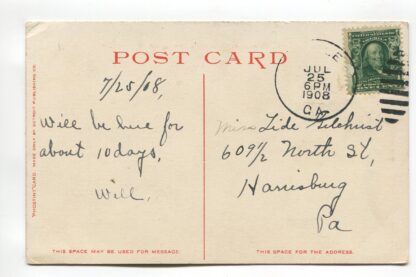 POST CARD
7/25/08,
Will be here for
about 10 days,
Will.
THIS SPACE MAY BE USED FOR MESSAGE.
"PHOSTINT" CARD. MADE ONLY BY DETROIT PUBLISHING CO.
JUL
25
6 PM
1908
Miss Lide Gilchrist
609½ North St,
Harrisburg
Pa
THIS SPACE IS FOR THE ADDRESS.